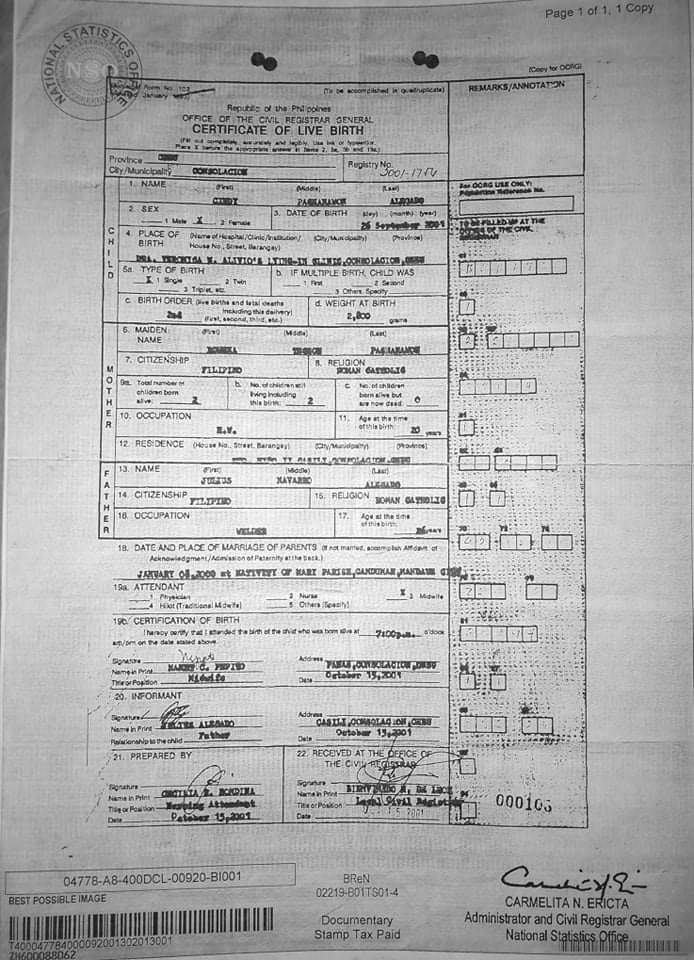 Page 1 of 1, 1 Copy
NATIONAL STATISTICS OFFICE
NSO
(Copy for OCRG)
Form No. 102
January
(To be accomplished in quadruplicate)
REMARKS/ANNOTATION
Republic of the Philippines
OFFICE OF THE CIVIL REGISTRAR GENERAL
CERTIFICATE OF LIVE BIRTH
(Fill out completely, accurately and legibly. Use ink or typewriter.
Place X before the appropriate answer in Items 2, 5a, 5b and 19a.)
Province CEBU
City/Municipality CONSOLACION
Registry No.
CHILD
1. NAME (First) (Middle) (Last)
PAGHARAMON ALEGADO
For OCRG USE ONLY:
2. SEX
1 Male X 2 Female
3. DATE OF BIRTH (day) (month) (year)
26 September 2001
TO BE FILLED UP AT THE
OFFICE OF THE CIVIL
4. PLACE OF BIRTH (Name of Hospital/Clinic/Institution/ (City/Municipality) (Province)
House No., Street, Barangay)
DRA. VERONICA N. ALIVIO'S LYING-IN CLINIC, CONSOLACION, CEBU
5a. TYPE OF BIRTH
X 1 Single 2 Twin
3 Triplet, etc.
b. IF MULTIPLE BIRTH, CHILD WAS
1 First 2 Second
3 Others, Specify
c. BIRTH ORDER (live births and fetal deaths
including this delivery)
2nd (First, second, third, etc.)
d. WEIGHT AT BIRTH
2,800 grams
MOTHER
6. MAIDEN NAME (First) (Middle) (Last)
PAGHARAMON
7. CITIZENSHIP
FILIPINO
8. RELIGION
ROMAN CATHOLIC
9a. Total number of children born alive: 2
b. No. of children still living including this birth: 2
c. No. of children born alive but are now dead: 0
10. OCCUPATION
11. Age at the time of this birth: 20 years
12. RESIDENCE (House No., Street, Barangay) (City/Municipality) (Province)
CASILI, CONSOLACION, CEBU
FATHER
13. NAME (First) (Middle) (Last)
JULIUS NAVARRO ALEGADO
14. CITIZENSHIP
FILIPINO
15. RELIGION
ROMAN CATHOLIC
16. OCCUPATION
WELDER
17. Age at the time of this birth: 26 years
18. DATE AND PLACE OF MARRIAGE OF PARENTS (If not married, accomplish Affidavit of
Acknowledgment/Admission of Paternity at the back.)
JANUARY 08, 2000 at NATIVITY OF MARY PARISH, CANDUMAN, MANDAUE CITY
19a. ATTENDANT
1 Physician 2 Nurse X 3 Midwife
4 Hilot (Traditional Midwife) 5 Others (Specify)
19b. CERTIFICATION OF BIRTH
I hereby certify that I attended the birth of the child who was born alive at 7:00p.m. o'clock
am/pm on the date stated above.
Signature
Name in Print NANCY C. PEPITO
Title or Position Midwife
Address CONSOLACION, CEBU
Date October 15, 2001
20. INFORMANT
Signature
Name in Print ALEGADO
Relationship to the child Father
Address CASILI, CONSOLACION, CEBU
Date October 15, 2001
21. PREPARED BY
Signature
Name in Print
Title or Position Nursing Attendant
Date October 15, 2001
22. RECEIVED AT THE OFFICE OF
THE CIVIL REGISTRAR
Signature
Name in Print
Title or Position Local Civil Registrar
Date
000103
04778-A8-400DCL-00920-BI001
BEST POSSIBLE IMAGE
T400047784000092001302013001
ZH600088062
BReN
02219-B01TS01-4
Documentary
Stamp Tax Paid
CARMELITA N. ERICTA
Administrator and Civil Registrar General
National Statistics Office